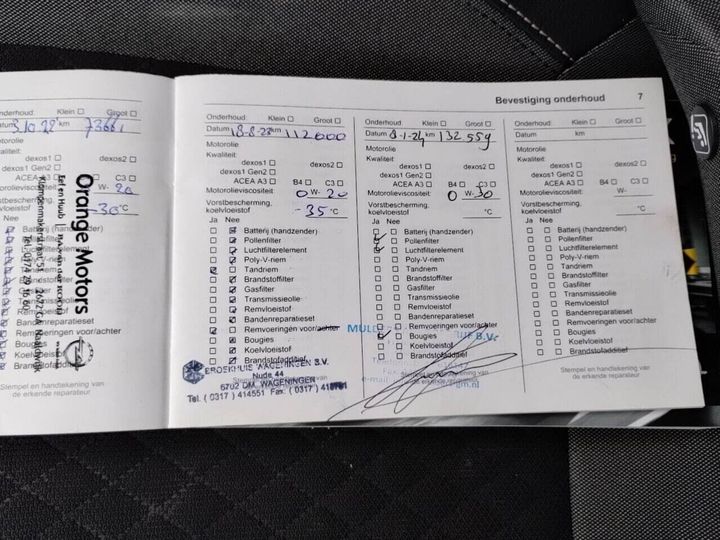 Bevestiging onderhoud 7
Onderhoud: Klein Groot
Datum 3.10.22 km
Motorolie
Kwaliteit:
dexos1 dexos2
dexos1 Gen2
ACEA A3 B4 C3
Motorolieviscositeit: W- 20
Vorstbescherming,
koelvloeistof -30 °C
Ja Nee
Batterij (handzender)
Pollenfilter
Luchtfilterelement
Poly-V-riem
Tandriem
Brandstoffilter
Gasfilter
Transmissieolie
Remvloeistof
Bandenreparatieset
Remvoeringen voor/achter
Bougies
Koelvloeistof
Brandstofadditief
Stempel en handtekening van
de erkende reparateur
Orange Motors
Onderhoud: Klein Groot
Datum 18-8-23 km 112000
Motorolie
Kwaliteit:
dexos1 dexos2
dexos1 Gen2
ACEA A3 B4 C3
Motorolieviscositeit: 0 W- 20
Vorstbescherming,
koelvloeistof -35 °C
Ja Nee
Batterij (handzender)
Pollenfilter
Luchtfilterelement
Poly-V-riem
Tandriem
Brandstoffilter
Gasfilter
Transmissieolie
Remvloeistof
Bandenreparatieset
Remvoeringen voor/achter
Bougies
Koelvloeistof
Brandstofadditief
BROEKHUIS WAGENINGEN B.V.
Nude 44
6702 DM WAGENINGEN
Tel. (0317) 414551 Fax: (0317)
Onderhoud: Klein Groot
Datum 8-1-24 km 132559
Motorolie
Kwaliteit:
dexos1 dexos2
dexos1 Gen2
ACEA A3 B4 C3
Motorolieviscositeit: 0 W- 30
Vorstbescherming,
koelvloeistof °C
Ja Nee
Batterij (handzender)
Pollenfilter
Luchtfilterelement
Poly-V-riem
Tandriem
Brandstoffilter
Gasfilter
Transmissieolie
Remvloeistof
Bandenreparatieset
Remvoeringen voor/achter
Bougies
Koelvloeistof
Brandstofadditief
B.V.
Stempel en handtekening van
de erkende reparateur
Onderhoud: Klein Groot
Datum km
Motorolie
Kwaliteit:
dexos1 dexos2
dexos1 Gen2
ACEA A3 B4 C3
Motorolieviscositeit: W-
Vorstbescherming,
koelvloeistof °C
Ja Nee
Batterij (handzender)
Pollenfilter
Luchtfilterelement
Poly-V-riem
Tandriem
Brandstoffilter
Gasfilter
Transmissieolie
Remvloeistof
Bandenreparatieset
Remvoeringen voor/achter
Bougies
Koelvloeistof
Brandstofadditief
Stempel en handtekening van
de erkende reparateur